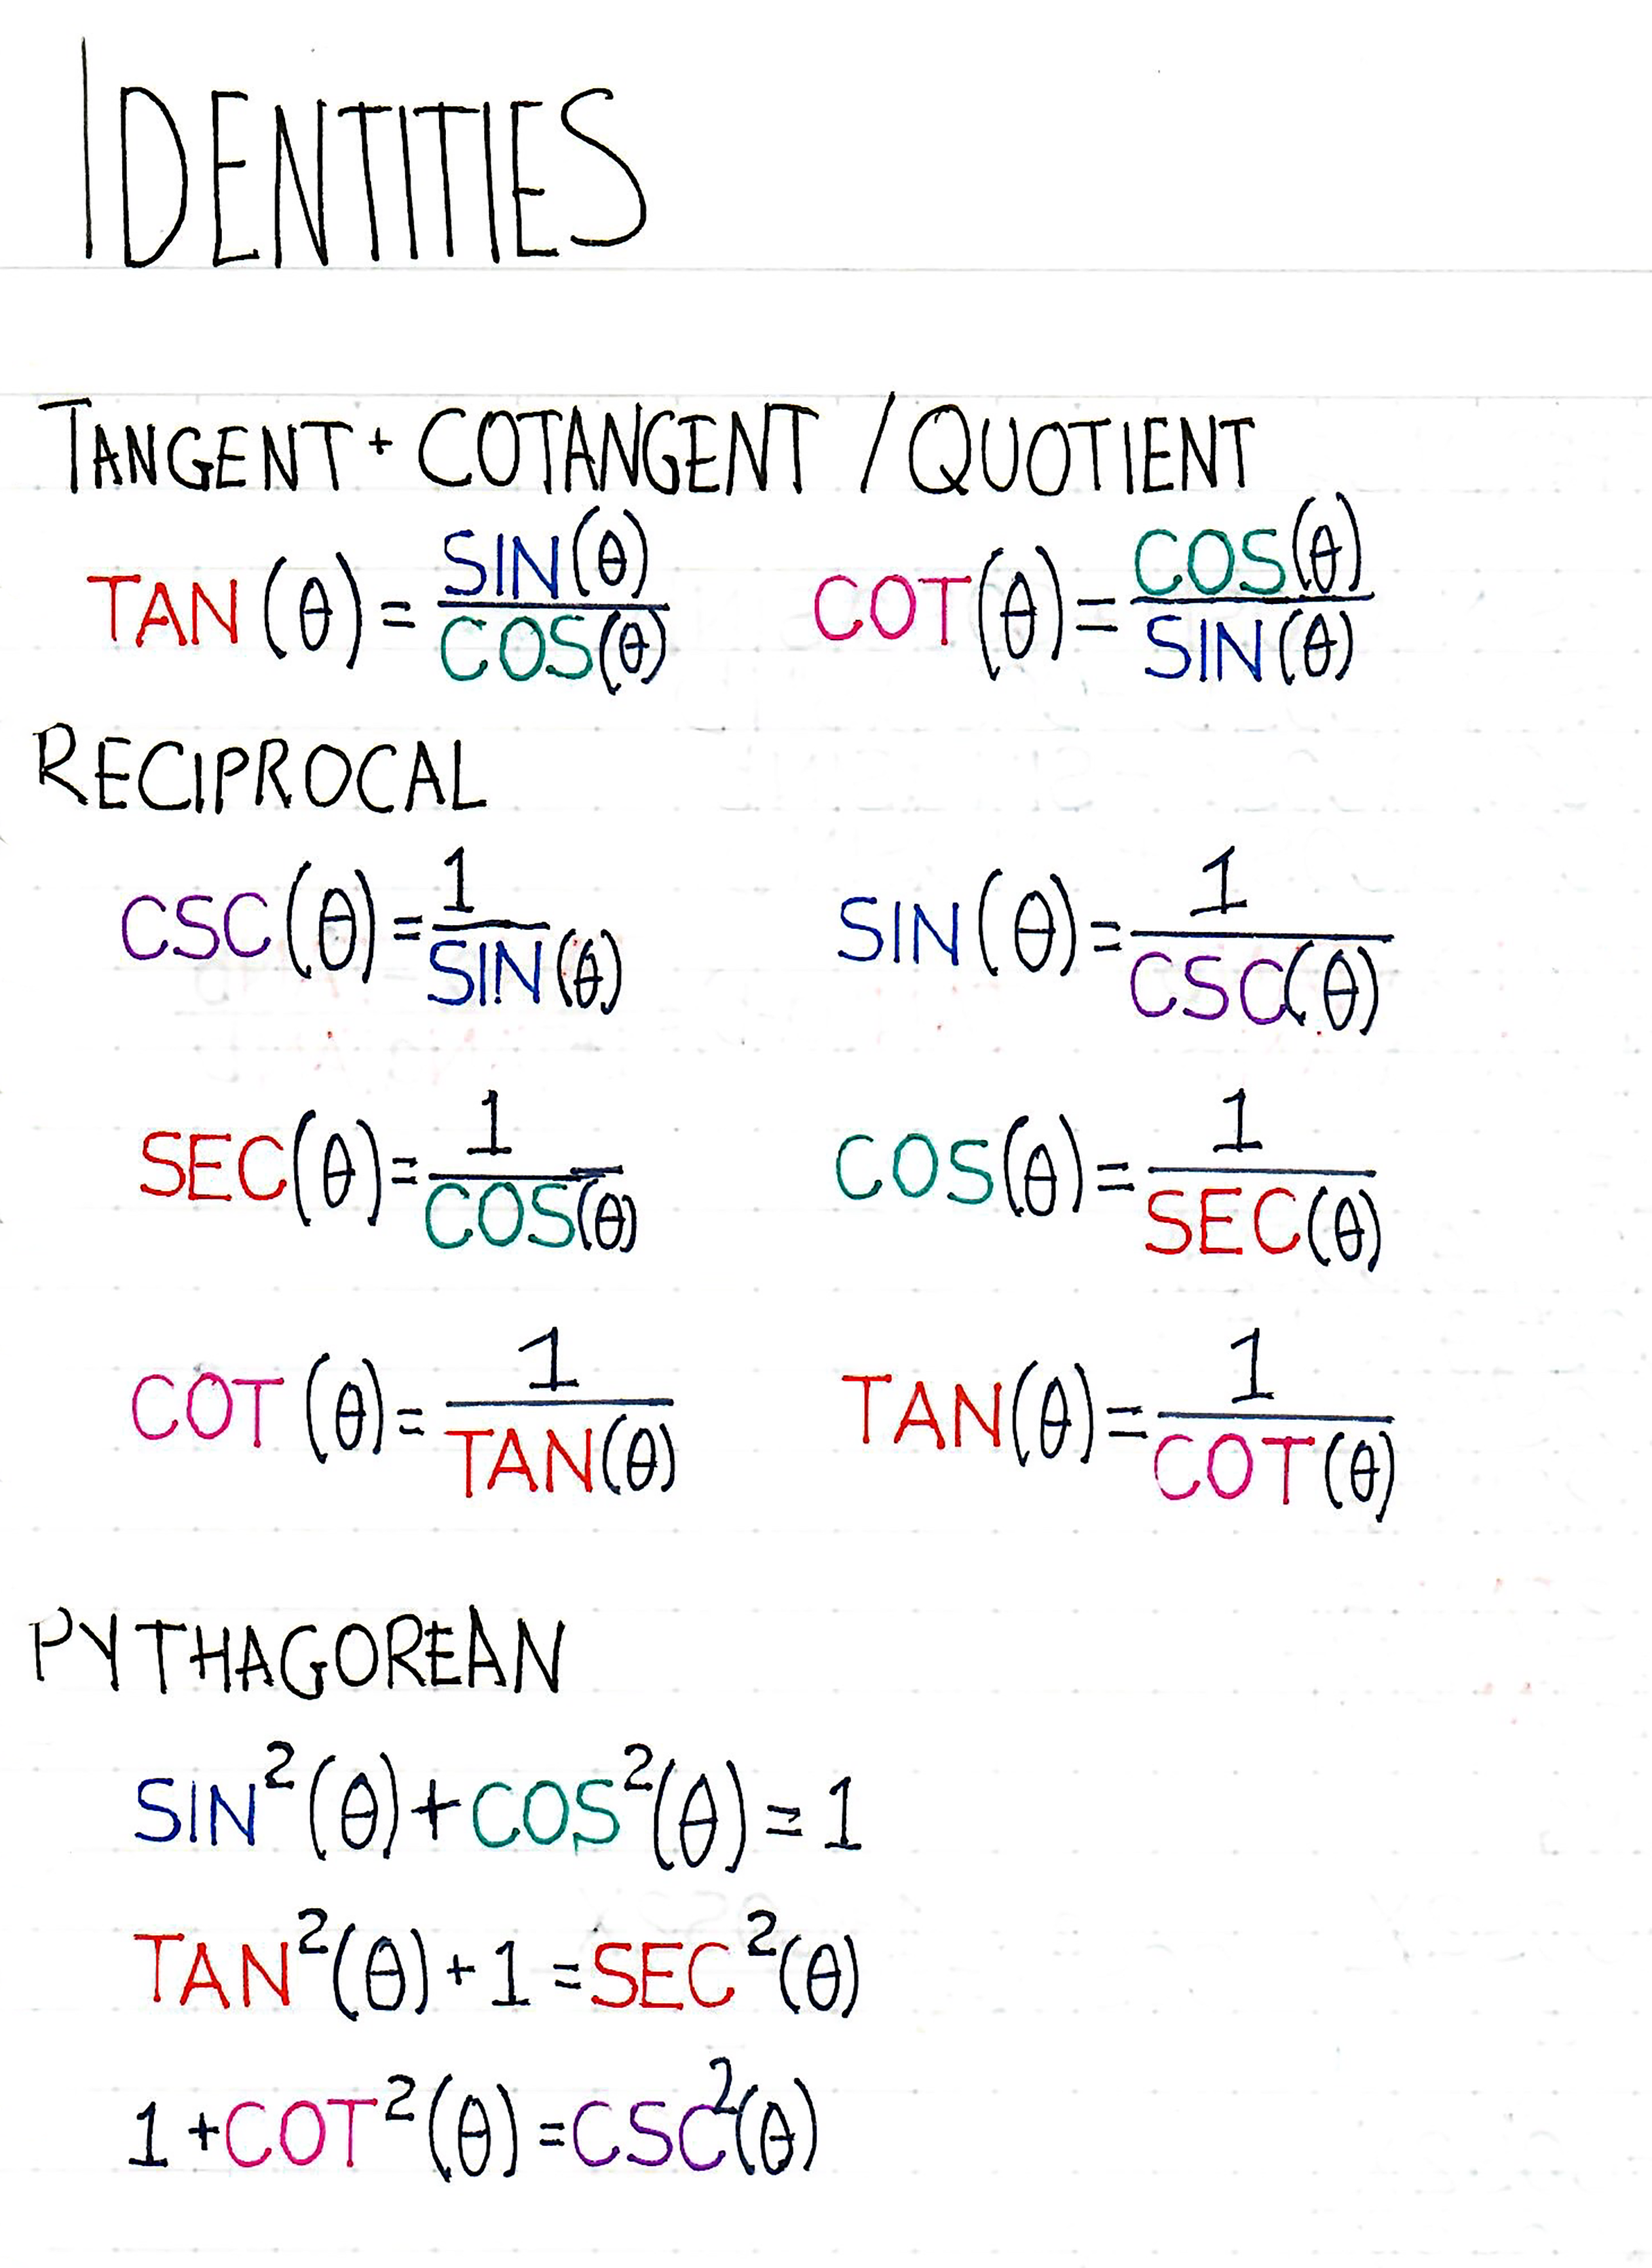 IDENTITIES
TANGENT + COTANGENT / QUOTIENT
TAN(θ) = SIN(θ)/COS(θ) COT(θ) = COS(θ)/SIN(θ)
RECIPROCAL
CSC(θ) = 1/SIN(θ) SIN(θ) = 1/CSC(θ)
SEC(θ) = 1/COS(θ) COS(θ) = 1/SEC(θ)
COT(θ) = 1/TAN(θ) TAN(θ) = 1/COT(θ)
PYTHAGOREAN
SIN²(θ) + COS²(θ) = 1
TAN²(θ) + 1 = SEC²(θ)
1 + COT²(θ) = CSC²(θ)